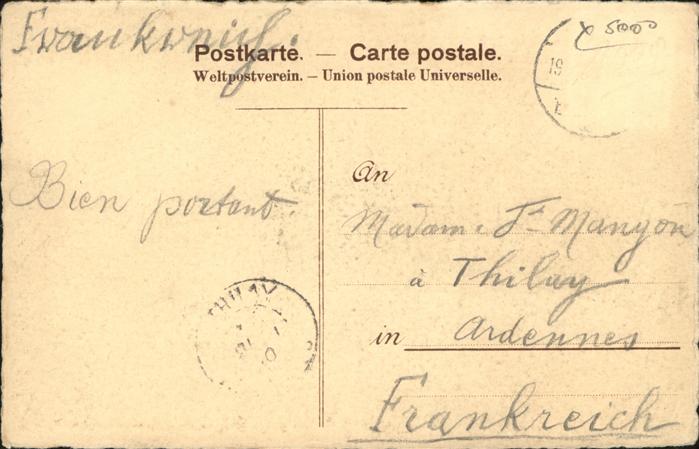 Frankreich.
Postkarte. — Carte postale.
Weltpostverein. – Union postale Universelle.
x 5000
Bien portant
An
Madame Mangon
à Thilay
in Ardennes
Frankreich
THILAY